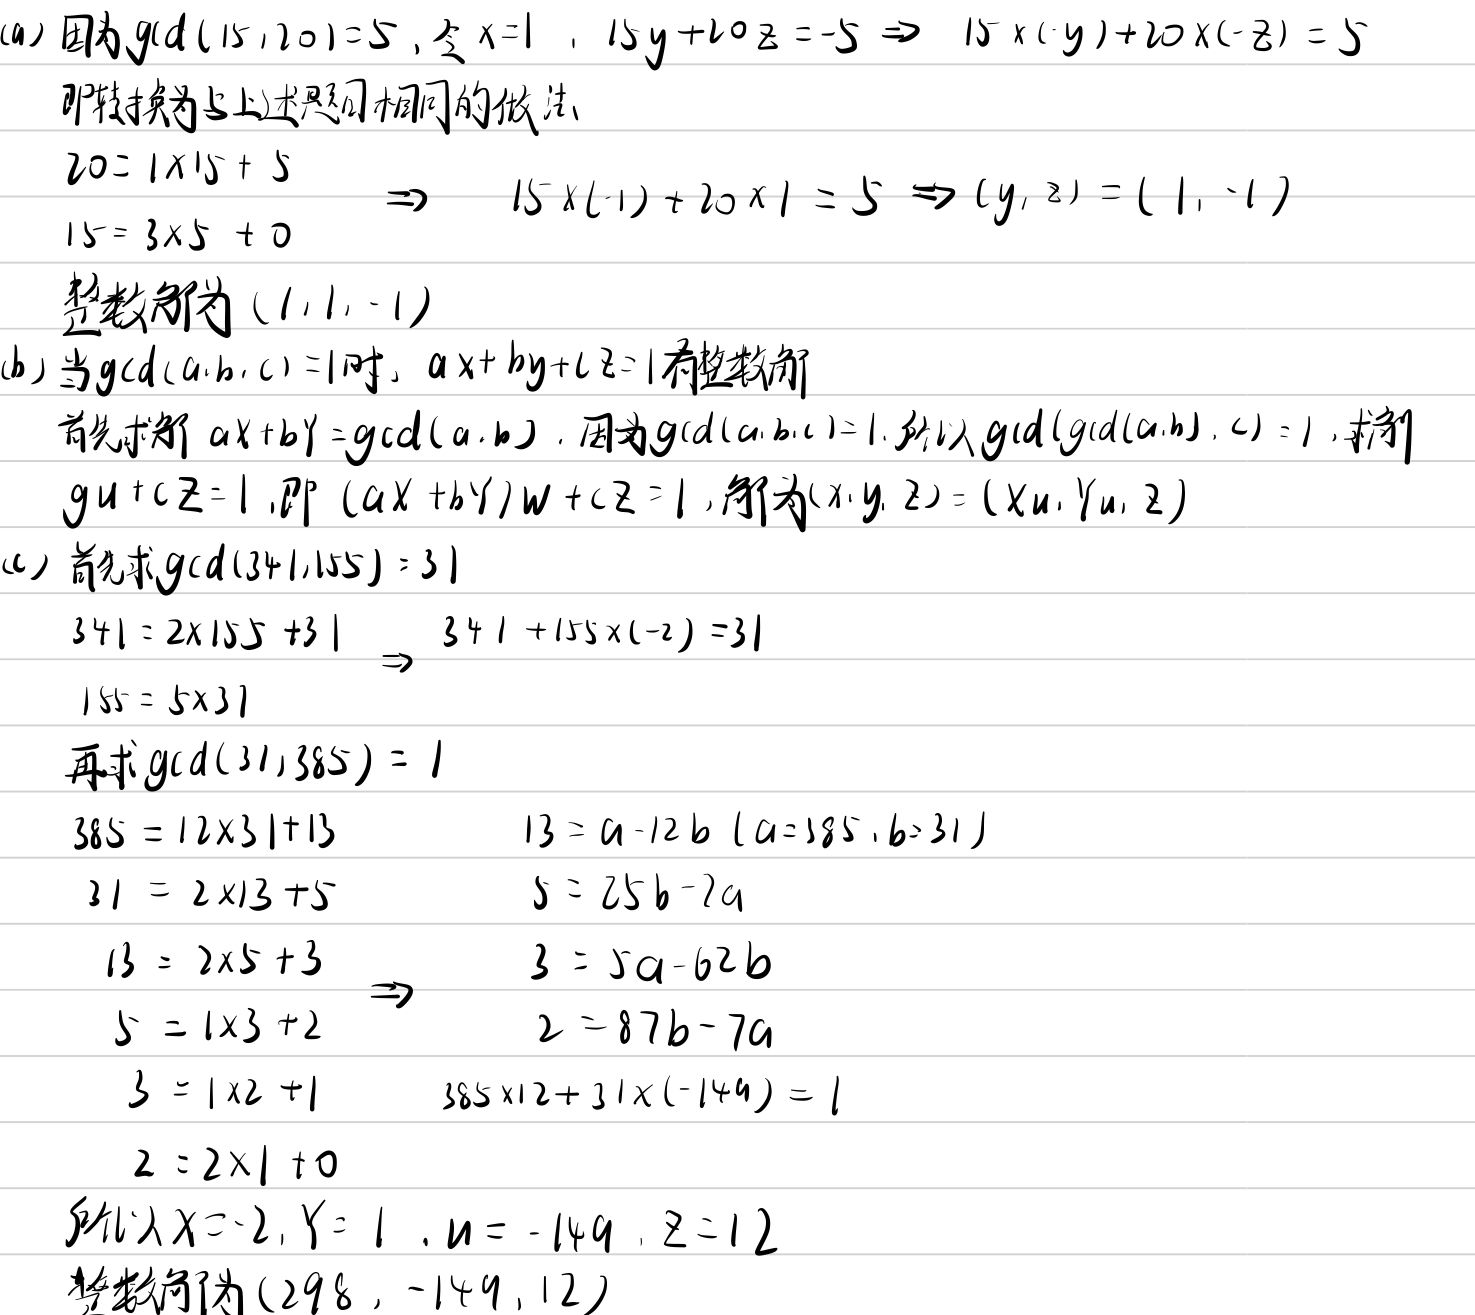 (a) 因为gcd(15,20)=5,令 x=1 , 15y+20z=-5 ⇒ 15×(-y)+20×(-z)=5
即转换为与上述题目相同的做法
20=1×15+5
⇒ 15×(-1)+20×1=5 ⇒ (y,z)=(1,-1)
15=3×5+0
整数解为(1,1,-1)
(b) 当gcd(a,b,c)=1时, ax+by+cz=1有整数解
首先求解 aX+bY=gcd(a,b),因为gcd(a,b,c)=1,所以gcd(gcd(a,b),c)=1,求解
gu+cz=1,即 (aX+bY)w+cz=1,解为(x,y,z)=(Xu,Yu,z)
(c) 首先求gcd(341,155)=31
341=2×155+31 ⇒ 341+155×(-2)=31
155=5×31
再求gcd(31,385)=1
385=12×31+13 13=a-12b (a=385,b=31)
31=2×13+5 5=25b-2a
13=2×5+3 ⇒ 3=5a-62b
5=1×3+2 2=87b-7a
3=1×2+1 385×12+31×(-149)=1
2=2×1+0
所以X=-2,Y=1,u=-149,z=12
整数解为(298,-149,12)